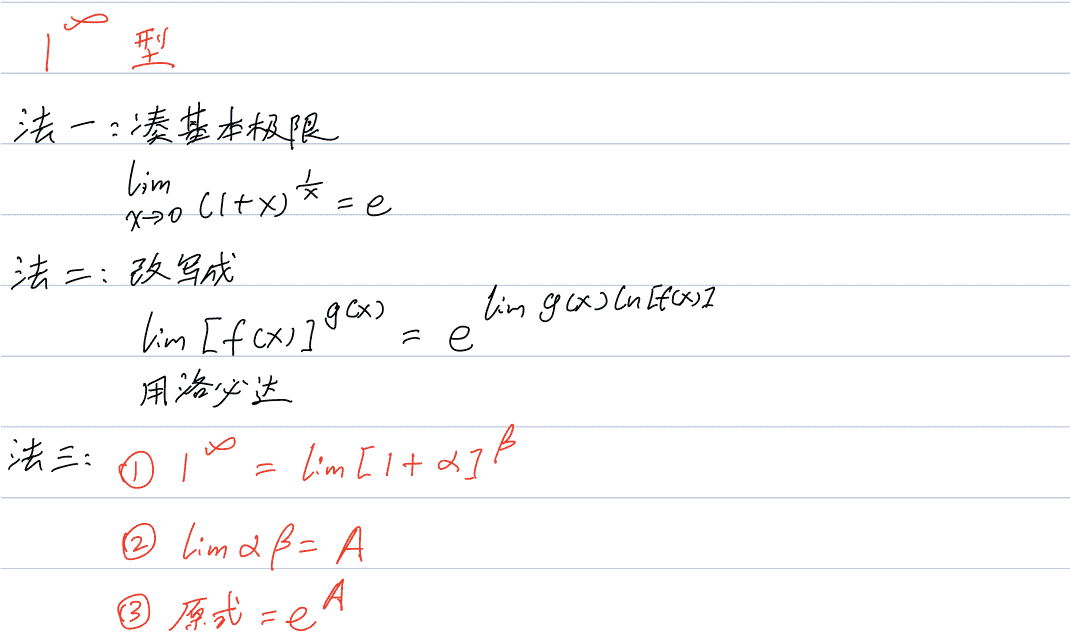 1^∞ 型
法一：凑基本极限
lim_{x→0} (1+x)^{1/x} = e
法二：改写成
lim [f(x)]^{g(x)} = e^{lim g(x) ln[f(x)]}
用洛必达
法三：① 1^∞ = lim [1+α]^β
② lim αβ = A
③ 原式 = e^A